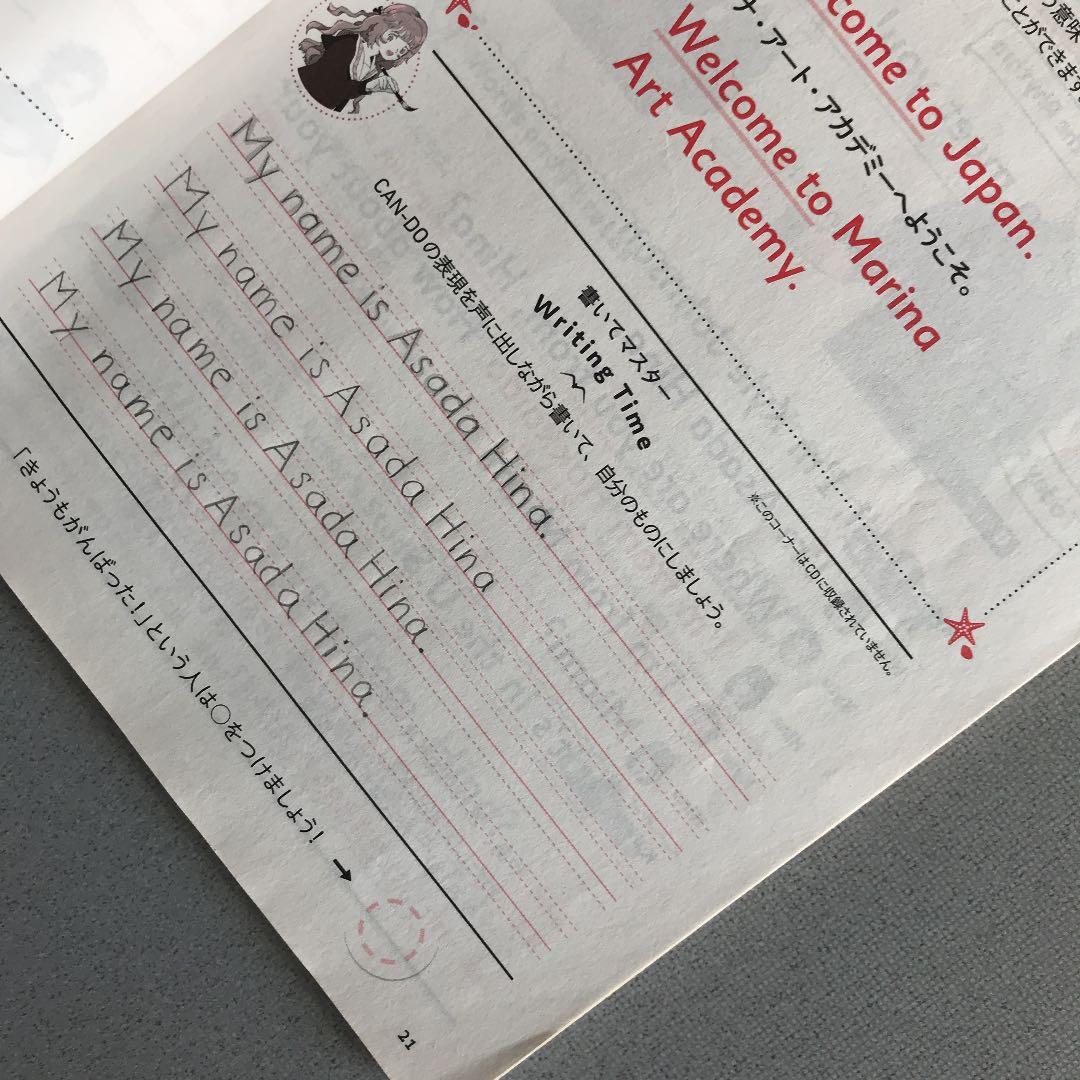 つ意味
ことができます
come to Japan.
ナ・アート・アカデミーへようこそ。
Welcome to Marina
Art Academy.
※このコーナーはCDに収録されていません。
書いてマスター
Writing Time
CAN-DOの表現を声に出しながら書いて、自分のものにしましょう。
My name is Asada Hina.
My name is Asada Hina
My name is Asada Hina.
My name is Asada Hina.
「きょうもがんばった!」という人は○をつけましょう!
21